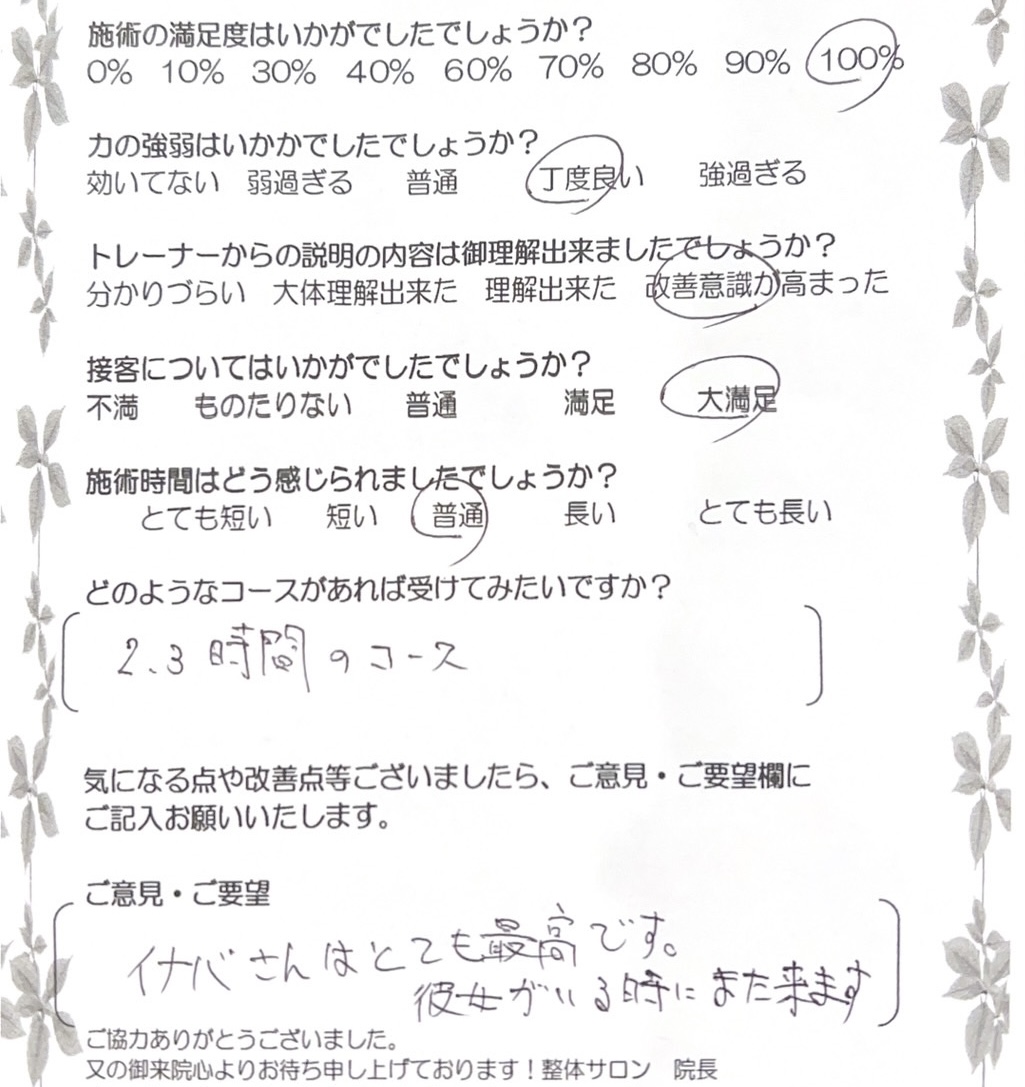 施術の満足度はいかがでしたでしょうか？
0% 10% 30% 40% 60% 70% 80% 90% 100%
力の強弱はいかかでしたでしょうか？
効いてない 弱過ぎる 普通 丁度良い 強過ぎる
トレーナーからの説明の内容は御理解出来ましたでしょうか？
分かりづらい 大体理解出来た 理解出来た 改善意識が高まった
接客についてはいかがでしたでしょうか？
不満 ものたりない 普通 満足 大満足
施術時間はどう感じられましたでしょうか？
とても短い 短い 普通 長い とても長い
どのようなコースがあれば受けてみたいですか？
2.3時間のコース
気になる点や改善点等ございましたら、ご意見・ご要望欄に
ご記入お願いいたします。
ご意見・ご要望
イナバさんはとても最高です。
彼女がいる時にまた来ます
ご協力ありがとうございました。
又の御来院心よりお待ち申し上げております！整体サロン 院長